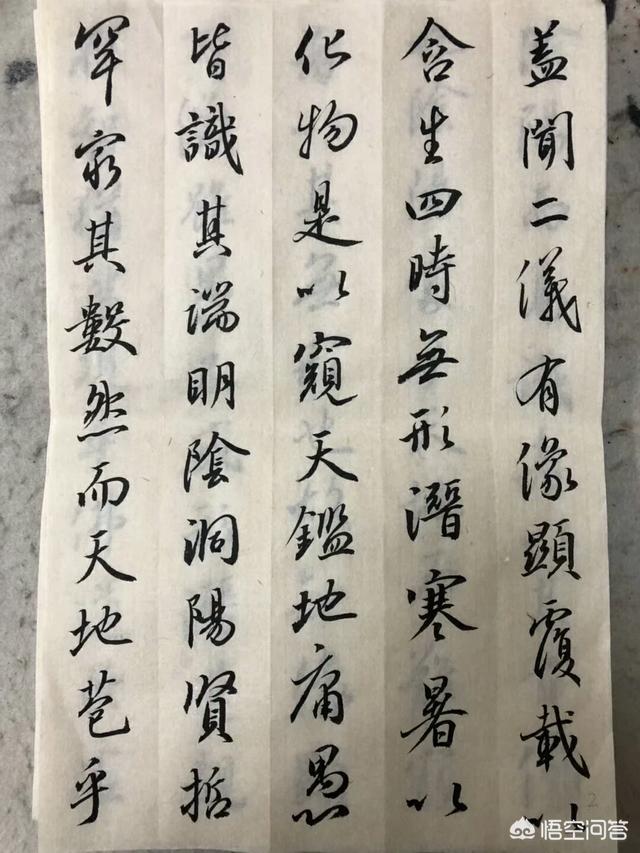 盖聞二儀有像顯覆載以
含生四時無形潛寒暑以
化物是以窺天鑑地庸愚
皆識其端明陰洞陽賢哲
罕窮其數然而天地苞乎
2
悟空问答